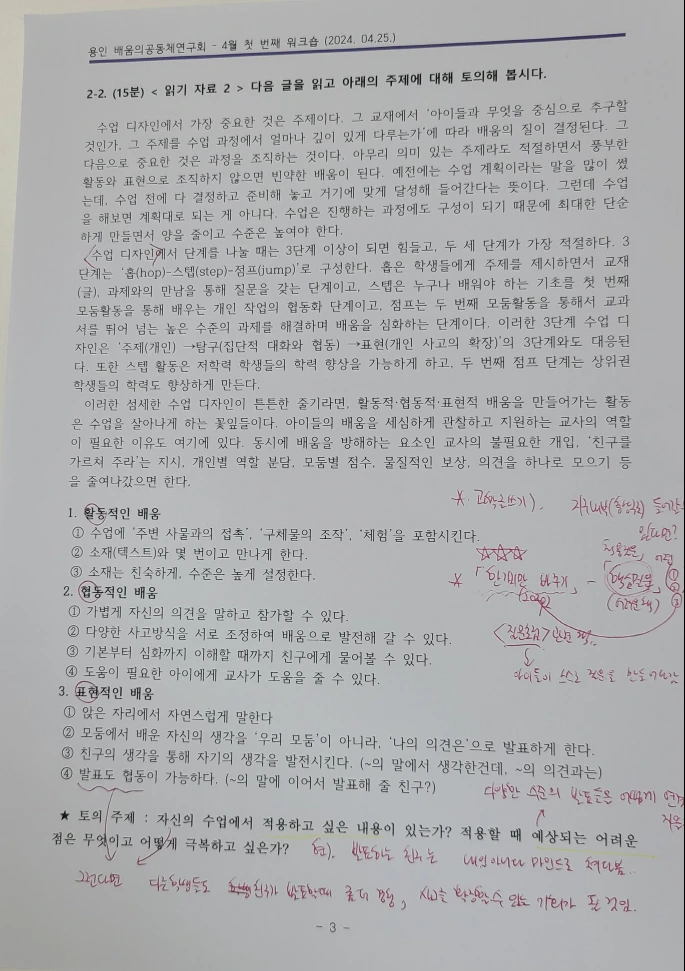 용인 배움의공동체연구회 - 4월 첫 번째 워크숍 (2024. 04.25.)
2-2. (15분) < 읽기 자료 2 > 다음 글을 읽고 아래의 주제에 대해 토의해 봅시다.
수업 디자인에서 가장 중요한 것은 주제이다. 그 교재에서 '아이들과 무엇을 중심으로 추구할
것인가, 그 주제를 수업 과정에서 얼마나 깊이 있게 다루는가'에 따라 배움의 질이 결정된다. 그
다음으로 중요한 것은 과정을 조직하는 것이다. 아무리 의미 있는 주제라도 적절하면서 풍부한
활동과 표현으로 조직하지 않으면 빈약한 배움이 된다. 예전에는 수업 계획이라는 말을 많이 썼
는데, 수업 전에 다 결정하고 준비해 놓고 거기에 맞게 달성해 들어간다는 뜻이다. 그런데 수업
을 해보면 계획대로 되는 게 아니다. 수업은 진행하는 과정에도 구성이 되기 때문에 최대한 단순
하게 만들면서 양을 줄이고 수준은 높여야 한다.
수업 디자인에서 단계를 나눌 때는 3단계 이상이 되면 힘들고, 두 세 단계가 가장 적절하다. 3
단계는 '홉(hop)-스텝(step)-점프(jump)'로 구성한다. 홉은 학생들에게 주제를 제시하면서 교재
(글), 과제와의 만남을 통해 질문을 갖는 단계이고, 스텝은 누구나 배워야 하는 기초를 첫 번째
모둠활동을 통해 배우는 개인 작업의 협동화 단계이고, 점프는 두 번째 모둠활동을 통해서 교과
서를 뛰어 넘는 높은 수준의 과제를 해결하며 배움을 심화하는 단계이다. 이러한 3단계 수업 디
자인은 '주제(개인) →탐구(집단적 대화와 협동) →표현(개인 사고의 확장)'의 3단계와도 대응된
다. 또한 스텝 활동은 저학력 학생들의 학력 향상을 가능하게 하고, 두 번째 점프 단계는 상위권
학생들의 학력도 향상하게 만든다.
이러한 섬세한 수업 디자인이 튼튼한 줄기라면, 활동적·협동적·표현적 배움을 만들어가는 활동
은 수업을 살아나게 하는 꽃잎들이다. 아이들의 배움을 세심하게 관찰하고 지원하는 교사의 역할
이 필요한 이유도 여기에 있다. 동시에 배움을 방해하는 요소인 교사의 불필요한 개입, '친구를
가르쳐 주라'는 지시, 개인별 역할 분담, 모둠별 점수, 물질적인 보상, 의견을 하나로 모으기 등
을 줄여나갔으면 한다.
1. 활동적인 배움
① 수업에 '주변 사물과의 접촉', '구체물의 조작', '체험'을 포함시킨다.
② 소재(텍스트)와 몇 번이고 만나게 한다.
③ 소재는 친숙하게, 수준은 높게 설정한다.
2. 협동적인 배움
① 가볍게 자신의 의견을 말하고 참가할 수 있다.
② 다양한 사고방식을 서로 조정하여 배움으로 발전해 갈 수 있다.
③ 기본부터 심화까지 이해할 때까지 친구에게 물어볼 수 있다.
④ 도움이 필요한 아이에게 교사가 도움을 줄 수 있다.
3. 표현적인 배움
① 앉은 자리에서 자연스럽게 말한다
② 모둠에서 배운 자신의 생각을 '우리 모둠'이 아니라, '나의 의견은'으로 발표하게 한다.
③ 친구의 생각을 통해 자기의 생각을 발전시킨다. (~의 말에서 생각한건데, ~의 의견과는)
④ 발표도 협동이 가능하다. (~의 말에 이어서 발표해 줄 친구?)
다양한 수준의 발표들은 어떻게
★ 토의 주제 : 자신의 수업에서 적용하고 싶은 내용이 있는가? 적용할 때 예상되는 어려운
점은 무엇이고 어떻게 극복하고 싶은가?
현). 발표하는 친구는 내일 아니다 마인드로 쳐다봄..
그런다면 다른학생들도
- 3 -